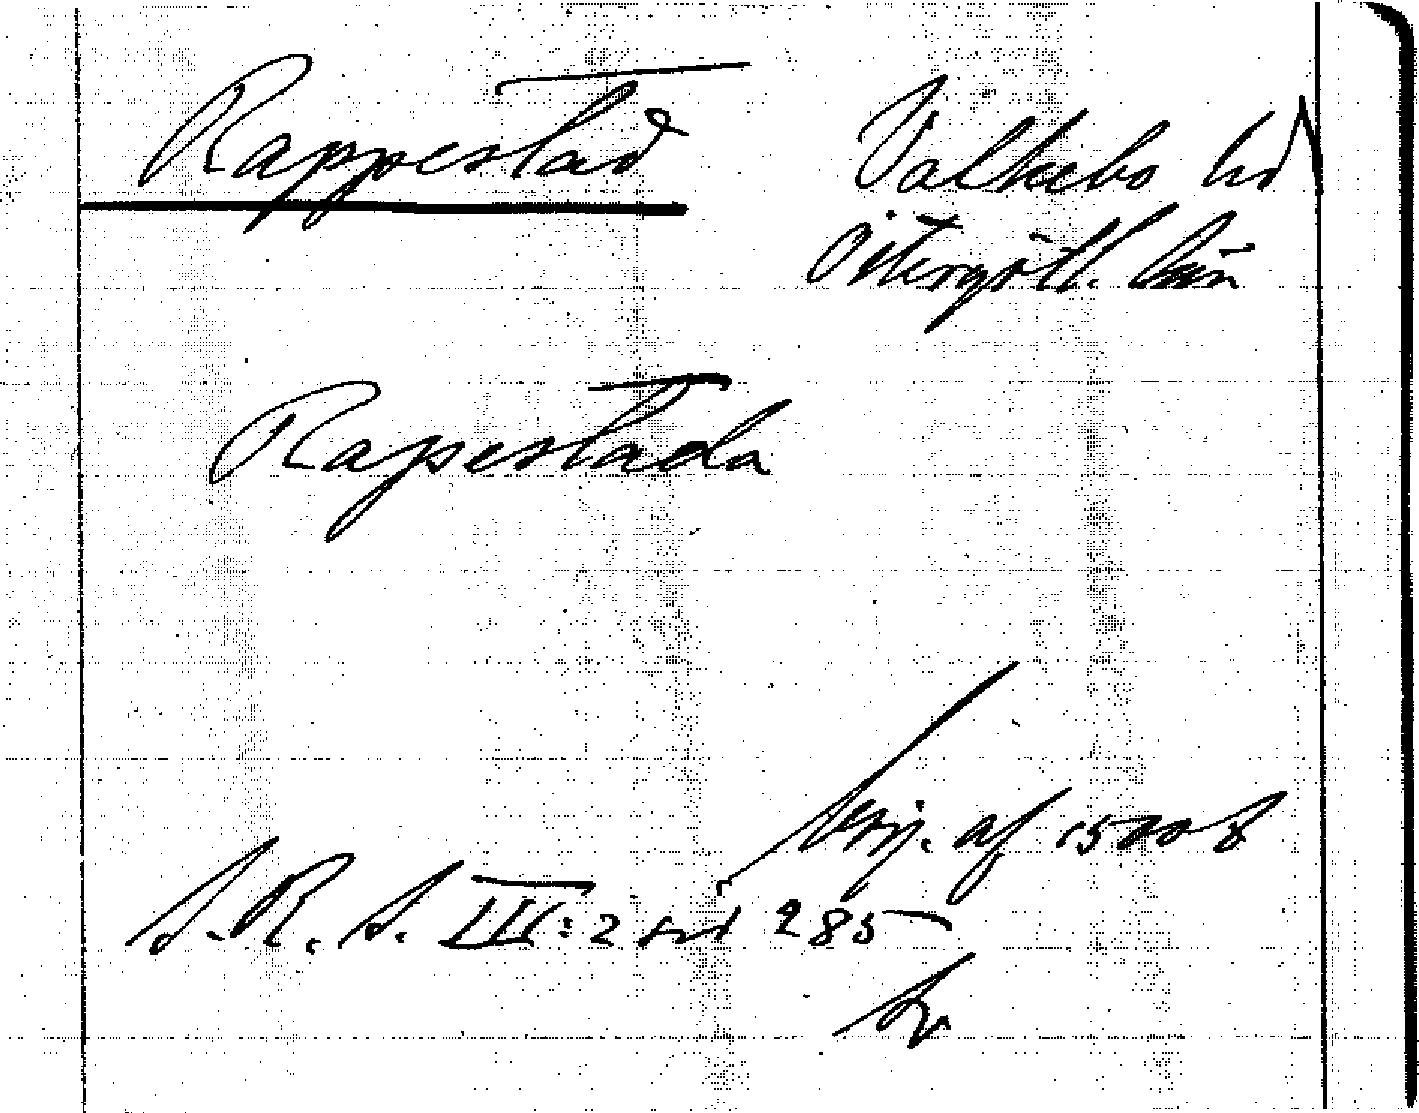 Rappestad Valkebo hd
Östergötl. län
Rapestada
Börj. af 1500 t
S. R. S. III: 2 sid 285